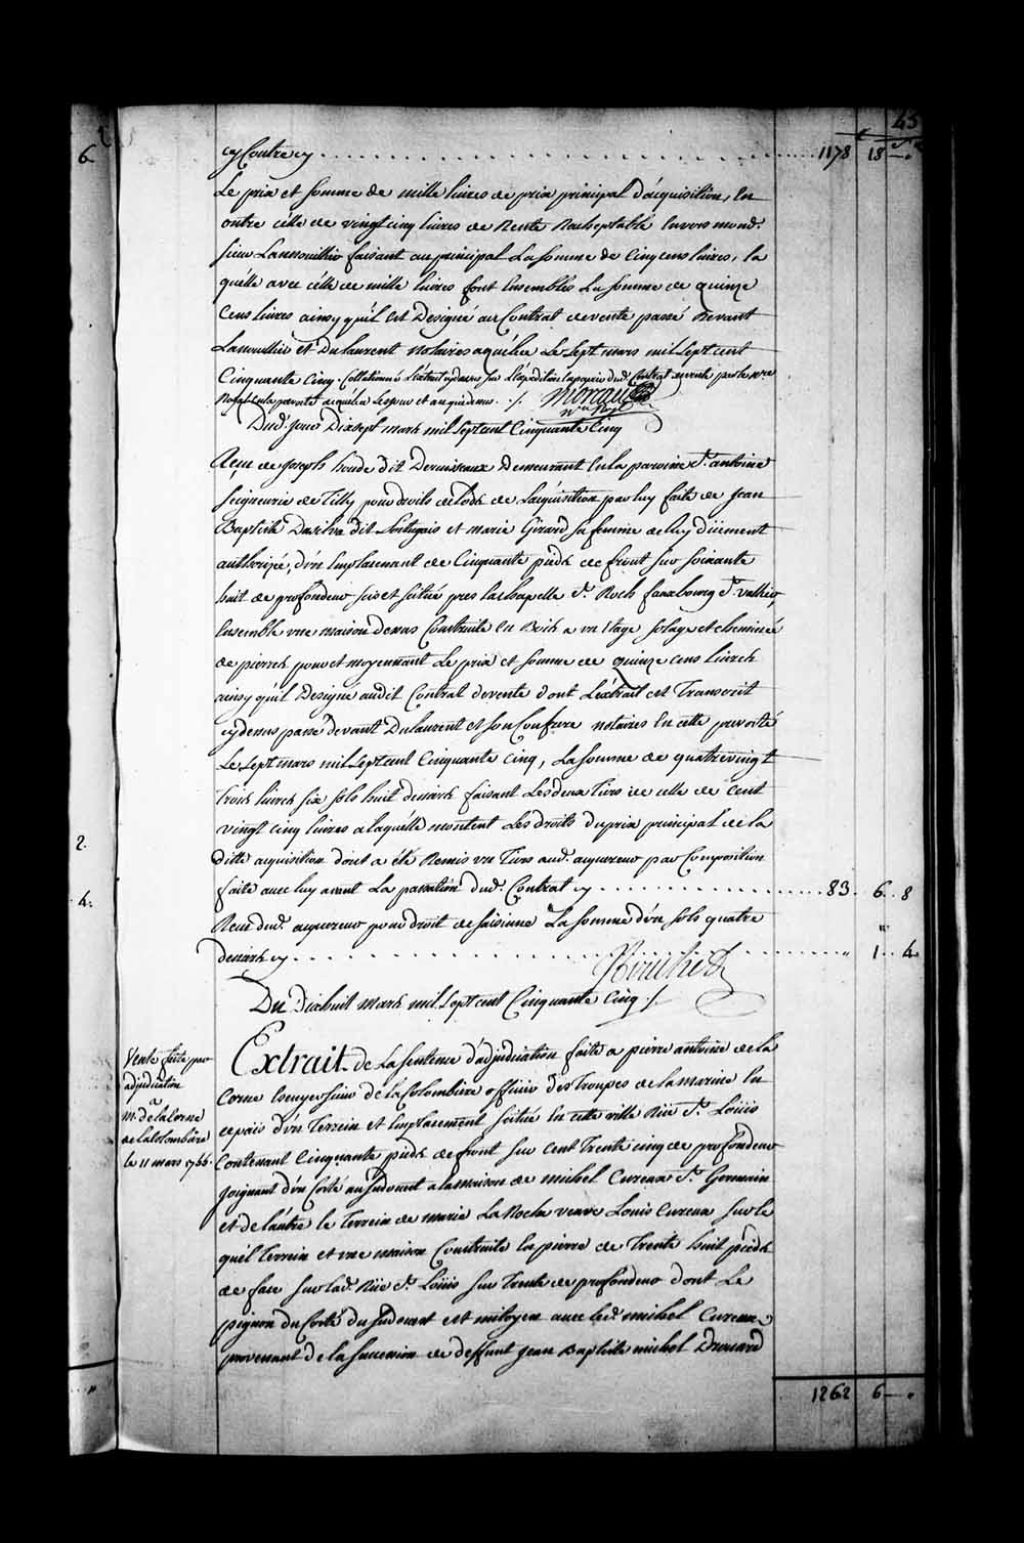 43
cy Contre cy . . . . . . . . . . 1178 18 — "
Le prix et somme de mille livres de prix principal d'acquisition, En
outre celle de vingt cinq livres de Rente Racheptable Envers mond.
sieur Lanouillier faisant au principal La somme de Cinq cens livres, la
quélle avec célle de mille livres font Ensembles La somme de quinze
Cens livres ainsy qu'il est Designé au Contrat de vente passé Devant
Lanoullier et Dulaurent Notaires a quebec Le Sept mars mil Sept cent
Cinquante Cinq. Collationné L'extrait cy dessus sur L'expedition en papier dud. Contrat de vente par le
a quebec Les jour et an que dessus ./. Moreau
Dud. jour Dixsept mars mil sept cent Cinquante Cinq
Reçu de Joseph houde dit Deruisseaux Demeurant En la paroisse St. antoine
Seigneurie de Tilly pour droits de lods de L'acquisition par luy faite de Jean
Baptiste Dasilva dit Portugais et marie Girard sa femme de luy düement
authorizée, d'un Emplacement de Cinquante pieds de front sur soixante
huit de profondeur sis et scitué pres la chapelle St. Roch fauxbourg St. vallier,
Ensemble une maison dessus Construite En Bois a un Etage solage et cheminée
de pierres pour et moyennant Le prix et somme de quinze cens livres
ainsy qu'il Designé audit Contrat de vente dont L'éxtrait est Transcrit
cy dessus passé devant Dulaurent et son Confrere notaires En cette prevosté
Le Sept mars mil Sept cent Cinquante cinq, La somme de quatre vingt
Trois livres six sols huit deniers faisant Les deux Tiers de celle de Cent
vingt cinq livres a laquélle montent Les droits du prix principal de la
ditte acquisition dont a été Remis un Tiers aud. acquereur par Composition
faite avec luy avant La passation dud. Contrat cy . . . . . . . . 83. 6.. 8
Reçu dud. acquereur pour droit de saisinne La somme d'un sols quatre
deniers cy . . . . . . . . " 1.. 4
Du Dixhuit mars mil Sept cent Cinquante Cinq ./.
Vente faite par
adjudication
a
Mr. de la Corne
de la Colombiere
le 11 mars 1755.
Extrait de La sentence d'adjudication faite a pierre antoine de La
Corne Ecuyer sieur de la Colombiere officier des Troupes de la marine En
ce pais d'un Terrein et Emplacement scitué En cette ville Rüe St. Loüis
Contenant Cinquante pieds de front sur Cent Trente cinq de profondeur
joignant d'un Costé au sudouest a la maison de michel Cureux St. Germain
et de l'autre le Terrein de marie La Roche veuve Louis Cureux sur le
quél Terrein est une maison Construite En pierre de Trente huit pieds
de face sur lad. Rüe St. Loüis sur Trente de profondeur dont Le
pignon du Costé du sudouest est mitoyen avec led. michel Cureux
provenant de la succession de deffunt Jean Baptiste michel Drouard
1262 6 — "
6
2.
4.